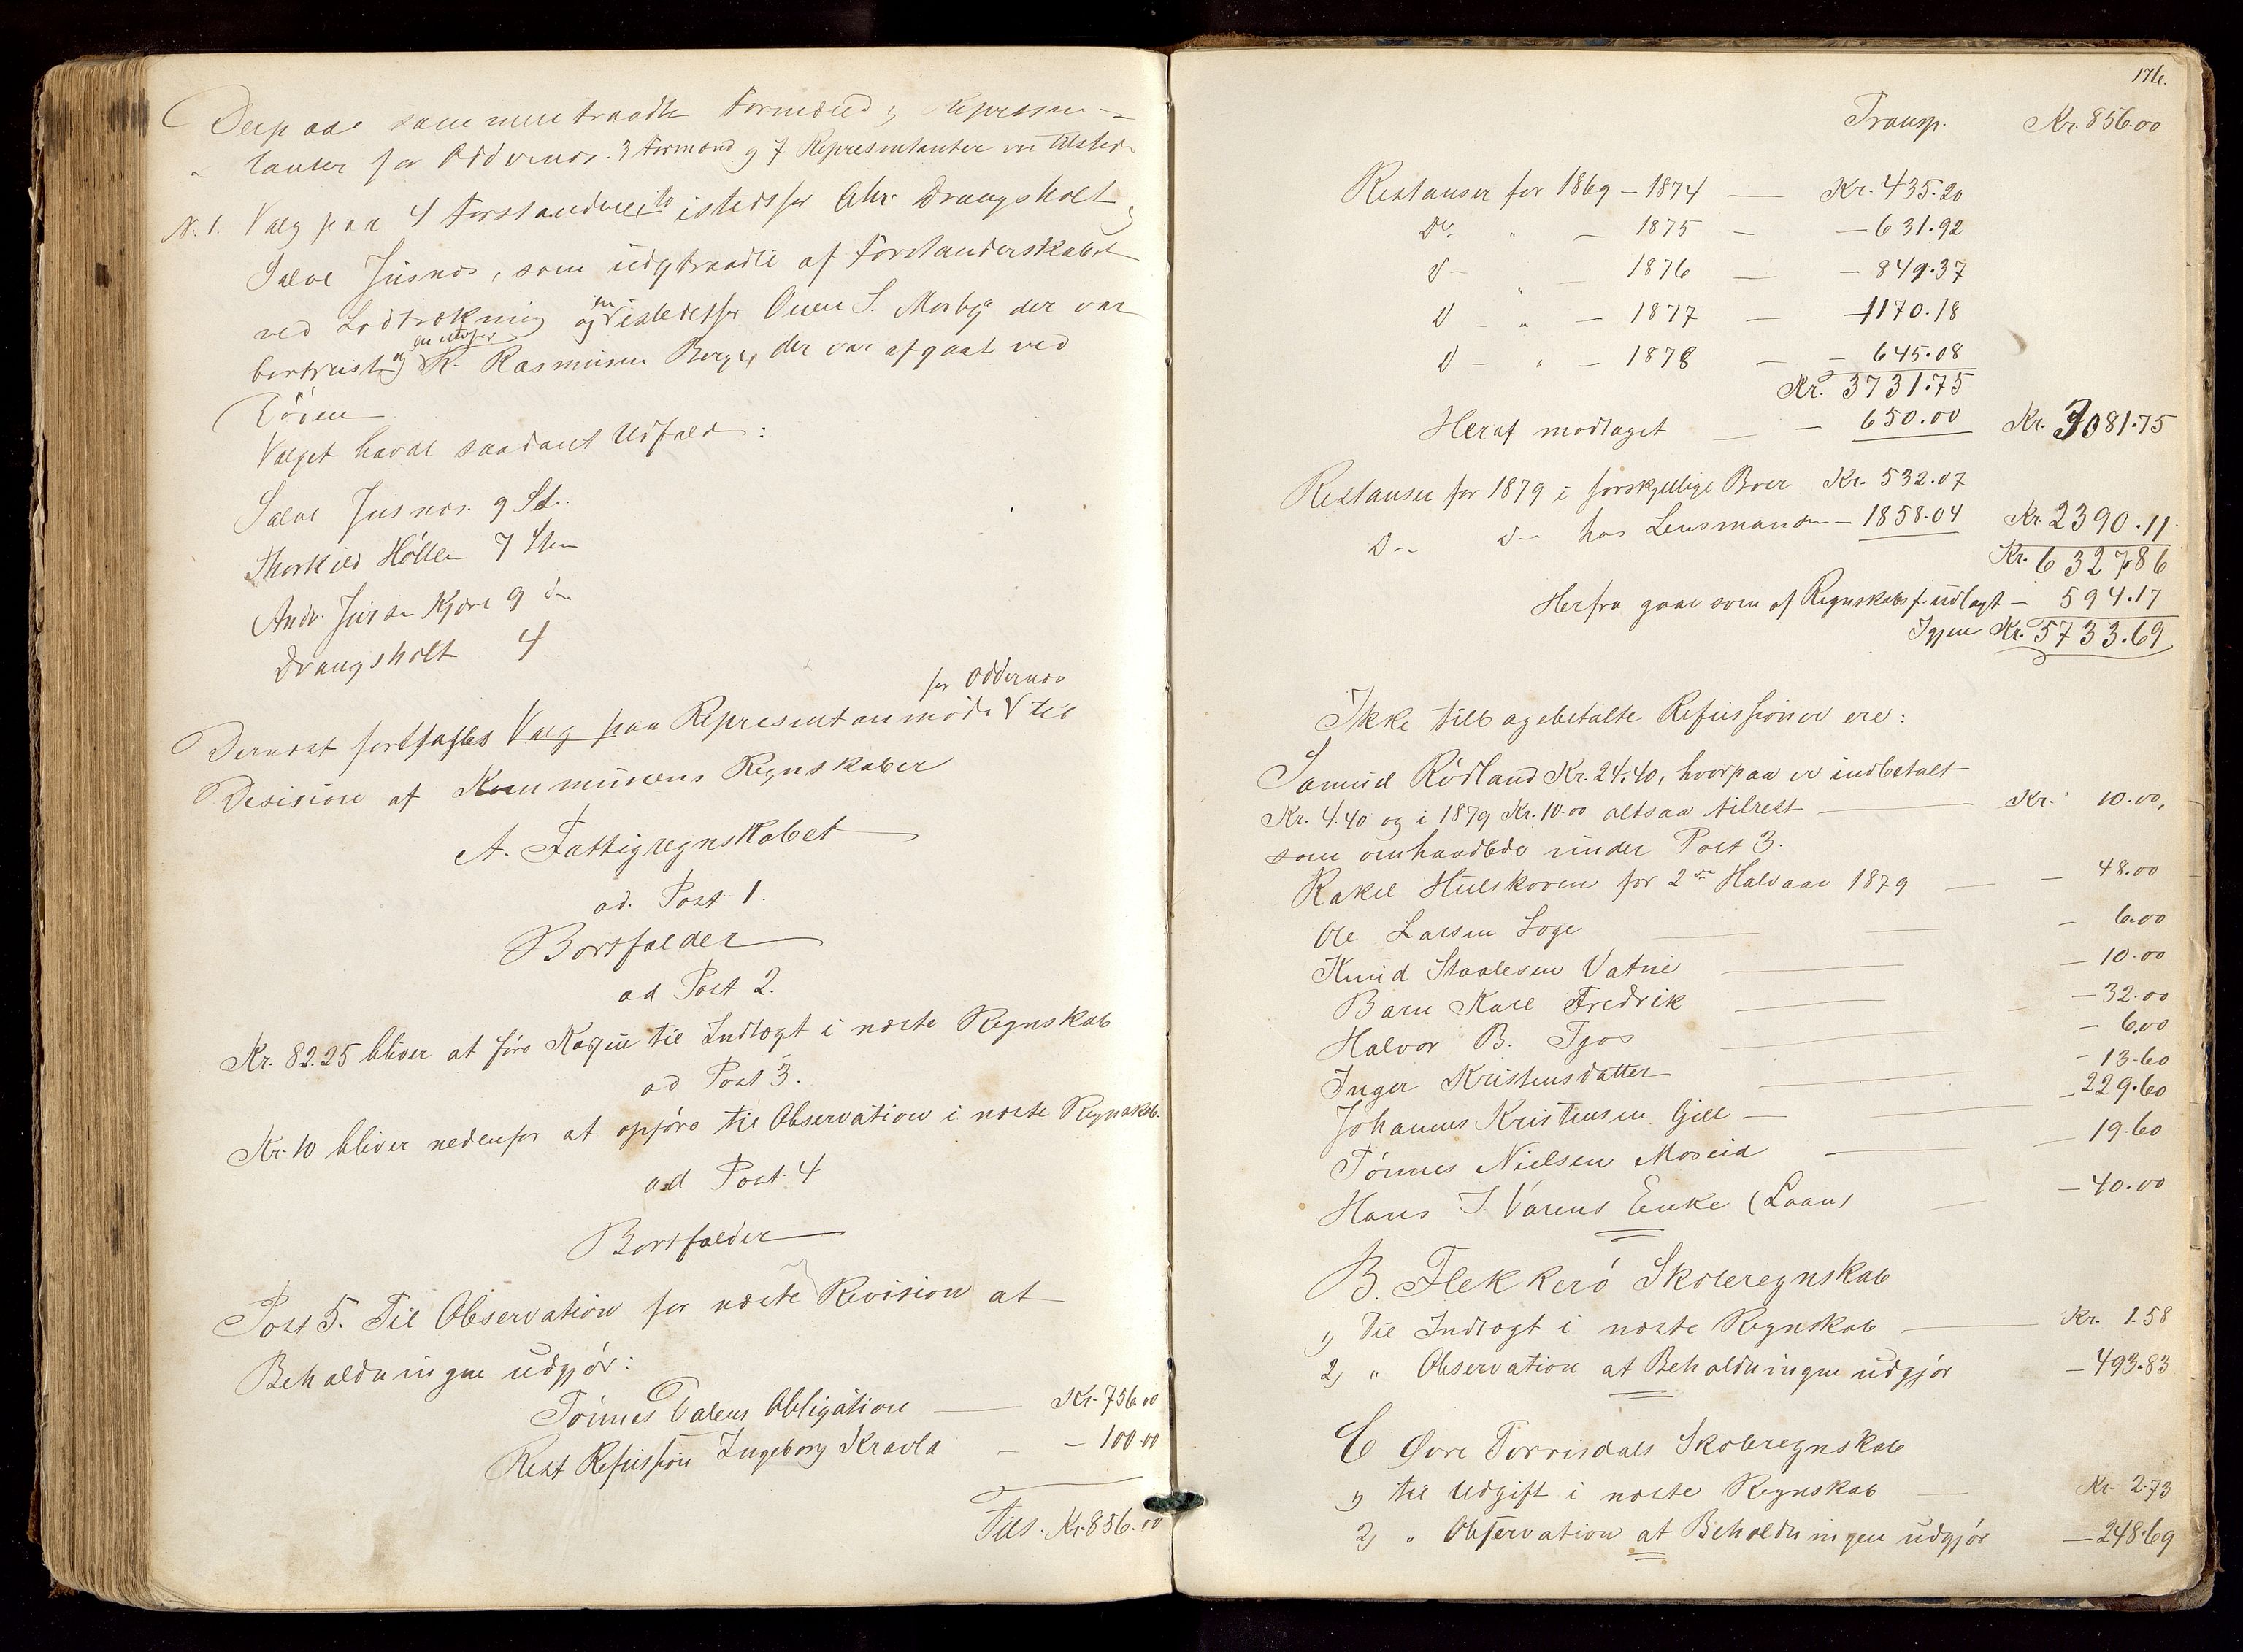 Derpaa sammentraadte Formænd & Repræsen-
tanter for Oddernæs. 3 Formænd og 7 Representanter var tilstede
N. 1. Valg paa 4 Forstandere, to istedsfor Chr. Drangsholt &
Salve Jusnæs, som udgtraadte af Forstanderskabet
ved Lodtrækning og en istedetfor Ouen S. Mosby der var
bortreist og en istedfor K. Rasmusen Berge, der var afgaat ved
Døden
Valget havde saadant Udfald:
Salve Jusnæs. 9 St.
Thorkild Höllen 7 Stm
Andr. Jürsen Kjære 9 do
Drangsholt 4
Dernæst fortsattes Valg paa Representanmöde for Oddernæs til
Desision af Kommunens Regnskaber
A. Fattigregnskabet
ad. Post 1.
Bortfalder
ad Post 2.
Kr. 82.25 bliver at före Kasse til Indtægt i næste Regnskab
ad Post 3.
Kr. 10 bliver nedenfor at opföre til Observation i næste Regnskab.
ad Post 4
Bortfalder
Post 5. Til Observation for næste Revision at
Beholdningen udgjör:
Tönnes Dalens Obligation — Kr. 756.00
Rest Refussion Ingeborg Kravla — - 100.00
Tils. Kr. 856.00
176.
Transp. Kr. 856.00
Restanser for 1869 – 1874 — Kr. 435.20
Do " – 1875 – — 631.92
D– " – 1876 — – 849.37
D – " – 1877 — 1170.18
D – " – 1878 — – 645.08
Kr. 3731.75
Heraf modtaget — – 650.00 Kr. 3081.75
Restanser for 1879 i forskjellige Boer Kr. 532.07
D– D– hos Lensmanden – 1858.04 Kr. 2390.11
Kr. 6327.86
Herfra gaar som af Regnskabsf. udlagt – 594.17
Igjen Kr. 5733.69
Ikke tilbagebetalte Refussioner ere:
Samuel Rödland Kr. 24.40, hvorpaa er indbetalt
Kr. 4.40 og i 1879 Kr. 10.00 altsaa tilrest — Kr. 10.00,
som omhandlede under Post 3.
Rakel Hulskoven for 2det Halvaar 1879 — – 48.00
Ole Larsen Loge — – 6.00
Knud Staalesen Vatne — – 10.00
Barn Karl Fredrik — – 32.00
Halvor B. Tjos — – 6.00
Inger Kristensdatter — – 13.60
Johannes Kristensen Gill — – 229.60
Tönnes Nielsen Moseid — – 19.60
Hans J. Varens Enke (Laan) — – 40.00
B. Flekkerö Skoleregnskab
1) Til Indtægt i næste Regnskab — Kr. 1.58
2) " Observation at Beholdningen udgjör – 493.83
C Övre Torrisdals Skoleregnskab
1) til Udgift i næste Regnskab — Kr. 2.73
2) " Observation at Beholdningen udgjör – 248.69